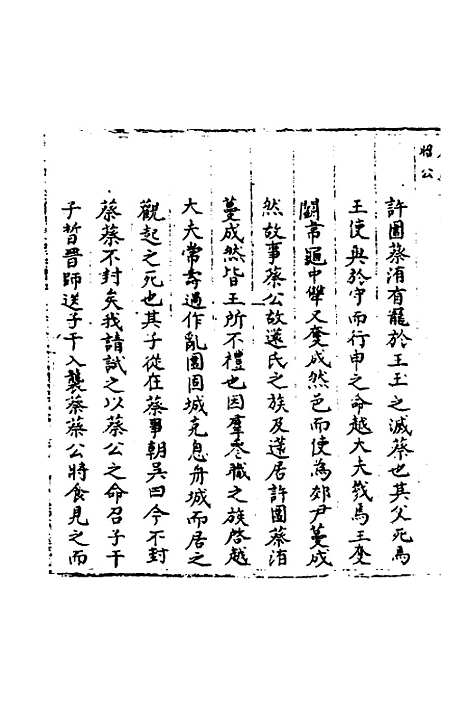 將公
許圍蔡洧有寵於王王之滅蔡也其父死焉
王使與於守而行申之會越大夫戮焉王奪
鬬韋龜中犫又奪成然邑而使為郊尹蔓成
然故事蔡公故薳氏之族及薳居許圍蔡洧
蔓成然皆王所不禮也因羣喪職之族啓越
大夫常壽過作亂圍固城克息舟城而居之
觀起之死也其子從在蔡事朝吳曰今不封
蔡蔡不封矣我請試之以蔡公之命召子干
子晳晋師送子干入襲蔡蔡公將食見之而